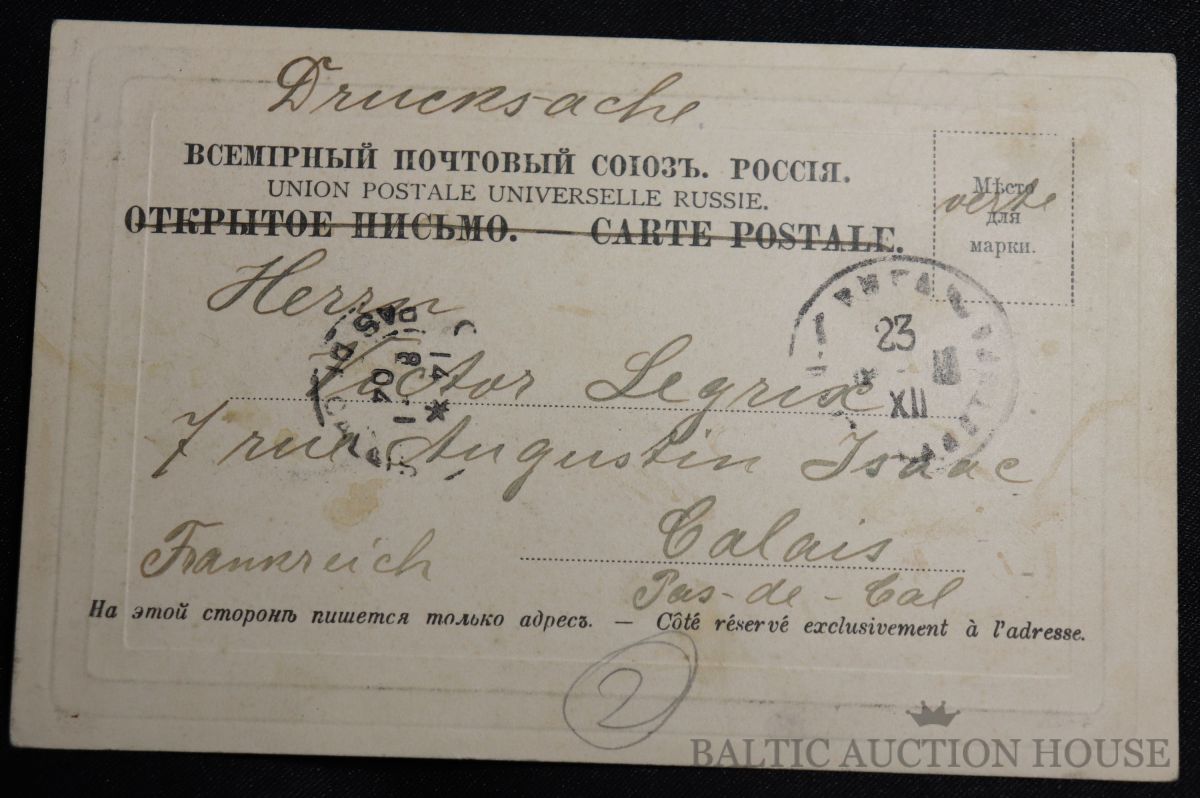 Drucksache
ВСЕМІРНЫЙ ПОЧТОВЫЙ СОЮЗЪ. РОССІЯ.
UNION POSTALE UNIVERSELLE RUSSIE.
ОТКРЫТОЕ ПИСЬМО. — CARTE POSTALE.
Мѣсто
verte
для
марки.
Herrn
Victor Legrix
7 rue Augustin Isaac
Calais
Frankreich
Pas-de-Cal
РИГА
23
XII
14 *
8
04
На этой сторонѣ пишется только адресъ. — Côté réservé exclusivement à l'adresse.
2
BALTIC AUCTION HOUSE